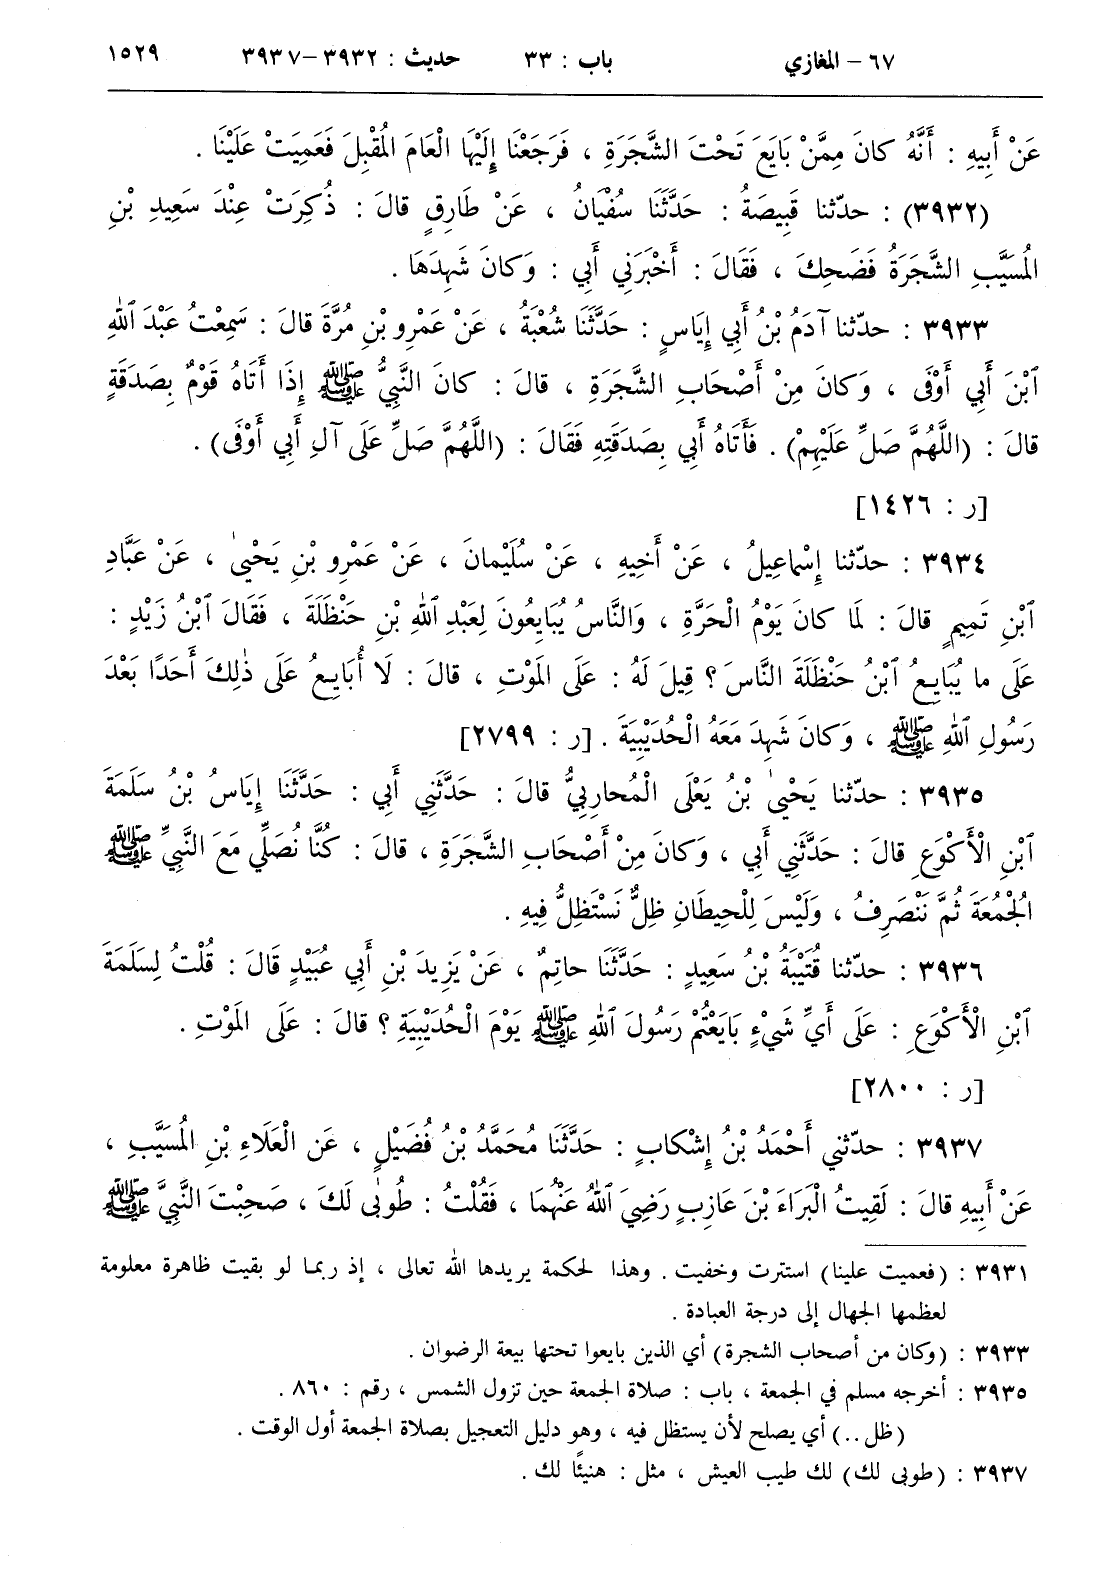 ٦٧ – المغازي باب : ٣٣ حديث : ٣٩٣٢–٣٩٣٧ ١٥٢٩
عَنْ أَبِيهِ : أَنَّهُ كانَ مِمَّنْ بَايَعَ تَحْتَ الشَّجَرَةِ ، فَرَجَعْنَا إِلَيْهَا الْعَامَ المُقْبِلَ فَعَمِيَتْ عَلَيْنَا .
(٣٩٣٢) : حدّثنا قَبِيصَةُ : حَدَّثَنَا سُفْيَانُ ، عَنْ طَارِقٍ قالَ : ذُكِرَتْ عِنْدَ سَعِيدِ بْنِ
المُسَيَّبِ الشَّجَرَةُ فَضَحِكَ ، فَقَالَ : أَخْبَرَنِي أَبِي : وَكانَ شَهِدَهَا .
٣٩٣٣ : حدّثنا آدَمُ بْنُ أَبِي إِيَاسٍ : حَدَّثَنَا شُعْبَةُ ، عَنْ عَمْرِو بْنِ مُرَّةَ قالَ : سَمِعْتُ عَبْدَ ٱللهِ
ٱبْنَ أَبِي أَوْفَى ، وَكانَ مِنْ أَصْحَابِ الشَّجَرَةِ ، قالَ : كانَ النَّبِيُّ ﷺ إِذَا أَتَاهُ قَوْمٌ بِصَدَقَةٍ
قالَ : (اللَّهُمَّ صَلِّ عَلَيْهِمْ) . فَأَتَاهُ أَبِي بِصَدَقَتِهِ فَقَالَ : (اللَّهُمَّ صَلِّ عَلَى آلِ أَبِي أَوْفَى) .
[ر : ١٤٢٦]
٣٩٣٤ : حدّثنا إِسْماعِيلُ ، عَنْ أَخِيهِ ، عَنْ سُلَيْمانَ ، عَنْ عَمْرِو بْنِ يَحْيىٰ ، عَنْ عَبَّادِ
ٱبْنِ تَمِيمٍ قالَ : لَمَا كانَ يَوْمُ الْحَرَّةِ ، وَالنَّاسُ يُبَايِعُونَ لِعَبْدِ ٱللهِ بْنِ حَنْظَلَةَ ، فَقَالَ ٱبْنُ زَيْدٍ :
عَلَى ما يُبَايِعُ ٱبْنُ حَنْظَلَةَ النَّاسَ ؟ قِيلَ لَهُ : عَلَى المَوْتِ ، قالَ : لَا أُبَايِعُ عَلَى ذٰلِكَ أَحَدًا بَعْدَ
رَسُولِ ٱللهِ ﷺ ، وَكانَ شَهِدَ مَعَهُ الْحُدَيْبِيَةَ . [ر : ٢٧٩٩]
٣٩٣٥ : حدّثنا يَحْيىٰ بْنُ يَعْلَى الْمُحارِبِيُّ قالَ : حَدَّثَنِي أَبِي : حَدَّثَنَا إِيَاسُ بْنُ سَلَمَةَ
ٱبْنِ الْأَكْوَعِ قالَ : حَدَّثَنِي أَبِي ، وَكانَ مِنْ أَصْحَابِ الشَّجَرَةِ ، قالَ : كُنَّا نُصَلِّي مَعَ النَّبِيِّ ﷺ
الجُمْعَةَ ثُمَّ نَنْصَرِفُ ، وَلَيْسَ لِلْحِيطَانِ ظِلٌّ نَسْتَظِلُّ فِيهِ .
٣٩٣٦ : حدّثنا قُتَيْبَةُ بْنُ سَعِيدٍ : حَدَّثَنَا حاتِمٌ ، عَنْ يَزِيدَ بْنِ أَبِي عُبَيْدٍ قَالَ : قُلْتُ لِسَلَمَةَ
ٱبْنِ الْأَكْوَعِ : عَلَى أَيِّ شَيْءٍ بَايَعْتُمْ رَسُولَ ٱللهِ ﷺ يَوْمَ الْحُدَيْبِيَةِ ؟ قالَ : عَلَى المَوْتِ .
[ر : ٢٨٠٠]
٣٩٣٧ : حدّثني أَحْمَدُ بْنُ إِشْكابٍ : حَدَّثَنَا مُحَمَّدُ بْنُ فُضَيْلٍ ، عَنِ الْعَلَاءِ بْنِ المُسَيَّبِ ،
عَنْ أَبِيهِ قالَ : لَقِيتُ الْبَرَاءَ بْنَ عازِبٍ رَضِيَ ٱللهُ عَنْهُمَا ، فَقُلْتُ : طُوبٰى لَكَ ، صَحِبْتَ النَّبِيَّ ﷺ
٣٩٣١ : (فعميت علينا) استترت وخفيت . وهذا لحكمة يريدها الله تعالى ، إذ ربمـا لو بقيت ظاهرة معلومة
لعظمها الجهال إلى درجة العبادة .
٣٩٣٣ : (وكان من أصحاب الشجرة) أي الذين بايعوا تحتها بيعة الرضوان .
٣٩٣٥ : أخرجه مسلم في الجمعة ، باب : صلاة الجمعة حين تزول الشمس ، رقم : ٨٦٠ .
(ظل ..) أي يصلح لأن يستظل فيه ، وهو دليل التعجيل بصلاة الجمعة أول الوقت .
٣٩٣٧ : (طوبى لك) لك طيب العيش ، مثل : هنيئًا لك .